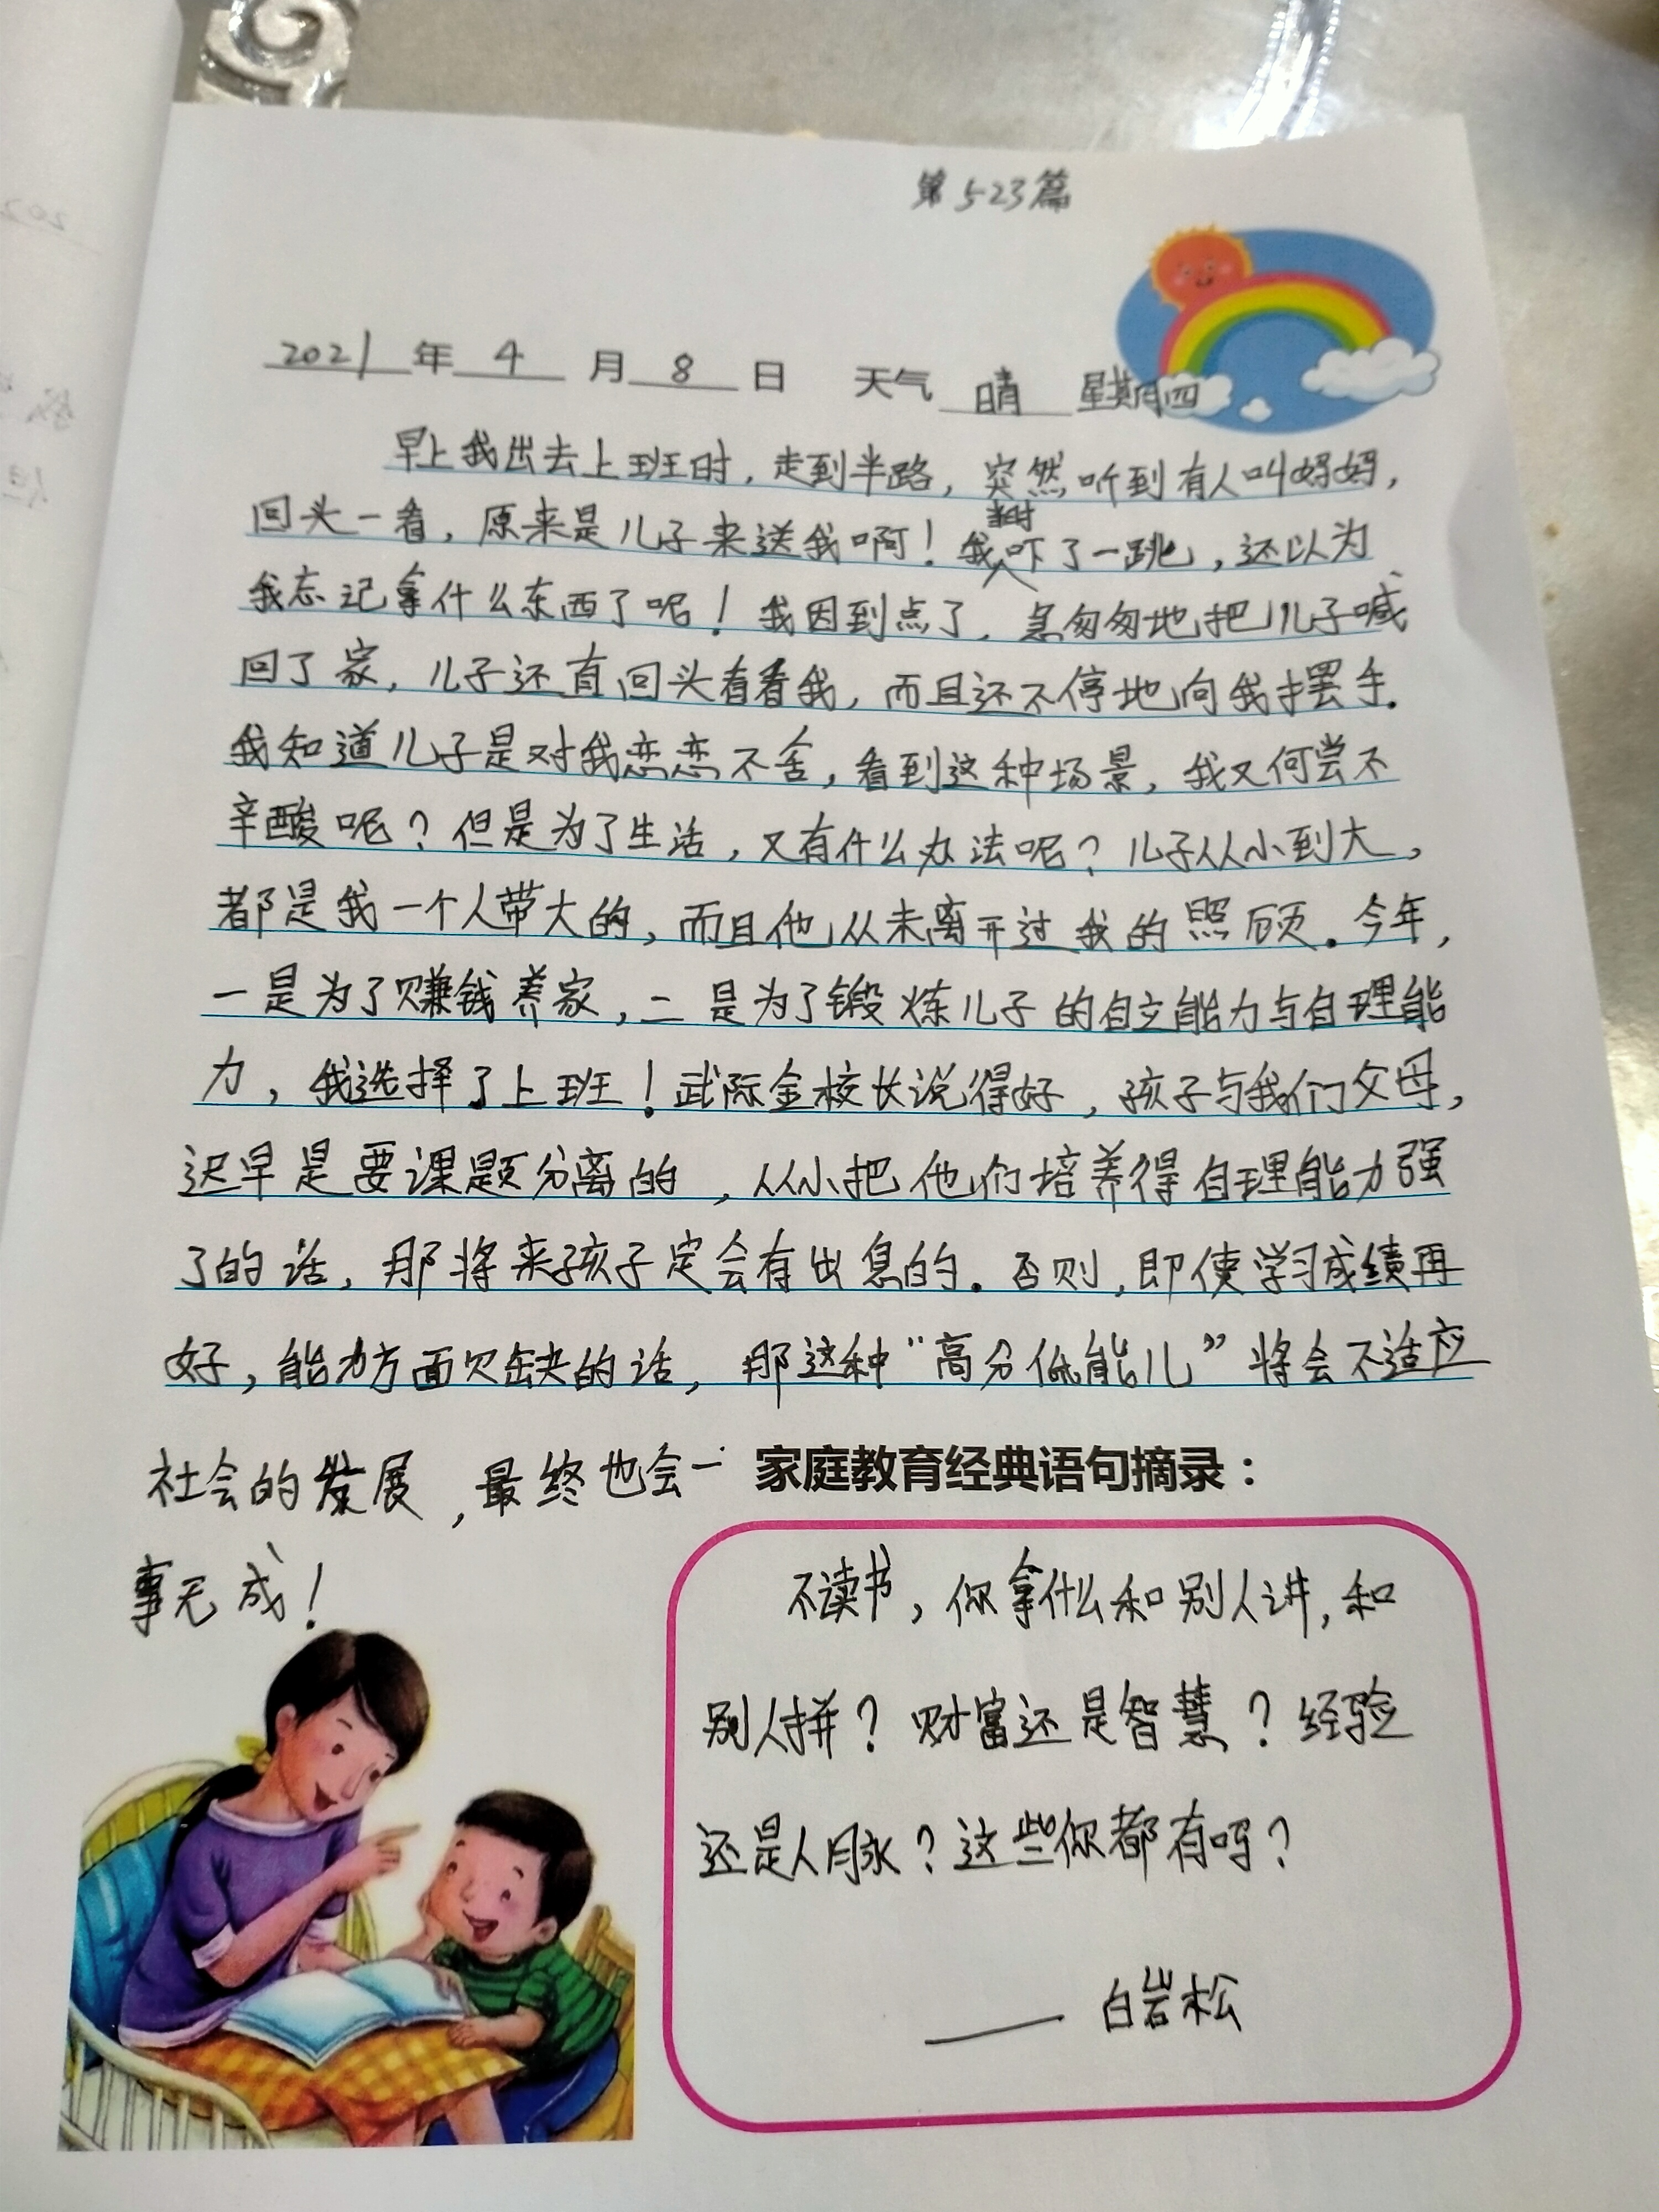 第523篇
2021年4月8日 天气 晴 星期四
早上我出去上班时，走到半路，突然听到有人叫妈妈，
回头一看，原来是儿子来送我啊！我当时吓了一跳，还以为
我忘记拿什么东西了呢！我因到点了，急匆匆地把儿子喊
回了家，儿子还直回头看看我，而且还不停地向我摆手。
我知道儿子是对我恋恋不舍，看到这种场景，我又何尝不
辛酸呢？但是为了生活，又有什么办法呢？儿子从小到大，
都是我一个人带大的，而且他从未离开过我的照顾。今年，
一是为了赚钱养家，二是为了锻炼儿子的自立能力与自理能
力，我选择了上班！武际金校长说得好，孩子与我们父母，
迟早是要课题分离的，从小把他们培养得自理能力强
了的话，那将来孩子定会有出息的。否则，即使学习成绩再
好，能力方面欠缺的话，那这种“高分低能儿”将会不适应
社会的发展，最终也会一
事无成！
家庭教育经典语句摘录：
不读书，你拿什么和别人讲，和
别人拼？财富还是智慧？经验
还是人脉？这些你都有吗？
—— 白岩松